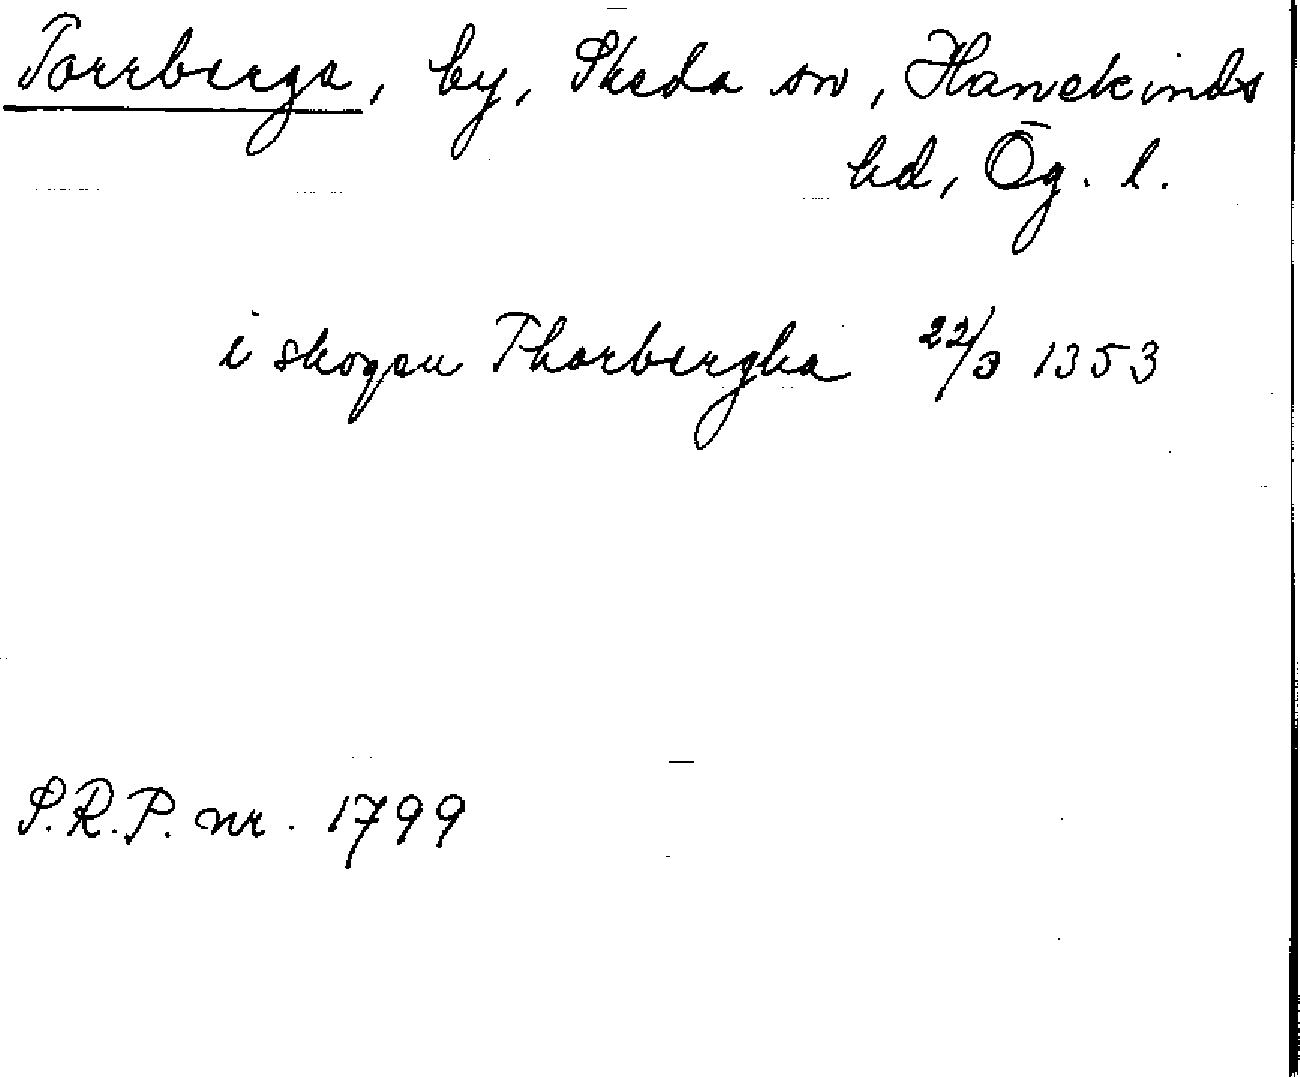 Torrberga, by, Skeda sn, Hanekinds
hd, Ög. l.
i skogen Thorbergha 22/3 1353
S.R.P. nr. 1799